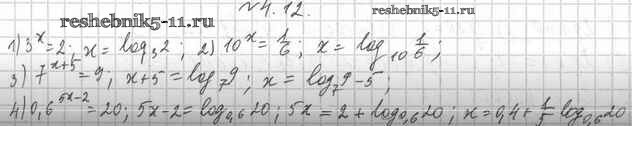 N4.12.
reshebnik5-11.ru
reshebnik5-11.ru
1) 3^x = 2; x = log_3 2; 2) 10^x = 1/6; x = log_10 1/6;
3) 7^(x+5) = 9; x+5 = log_7 9; x = log_7 9 - 5;
4) 0,6^(5x-2) = 20; 5x-2 = log_0,6 20; 5x = 2 + log_0,6 20; x = 0,4 + 1/5 log_0,6 20